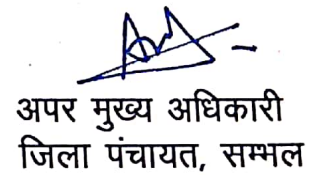 अपर मुख्य अधिकारी
जिला पंचायत, सम्भल